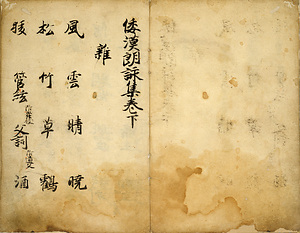 倭漢朗詠集卷下
雜
風 雲 晴 曉
松 竹 草 鶴
猨 管絃 文詞 酒